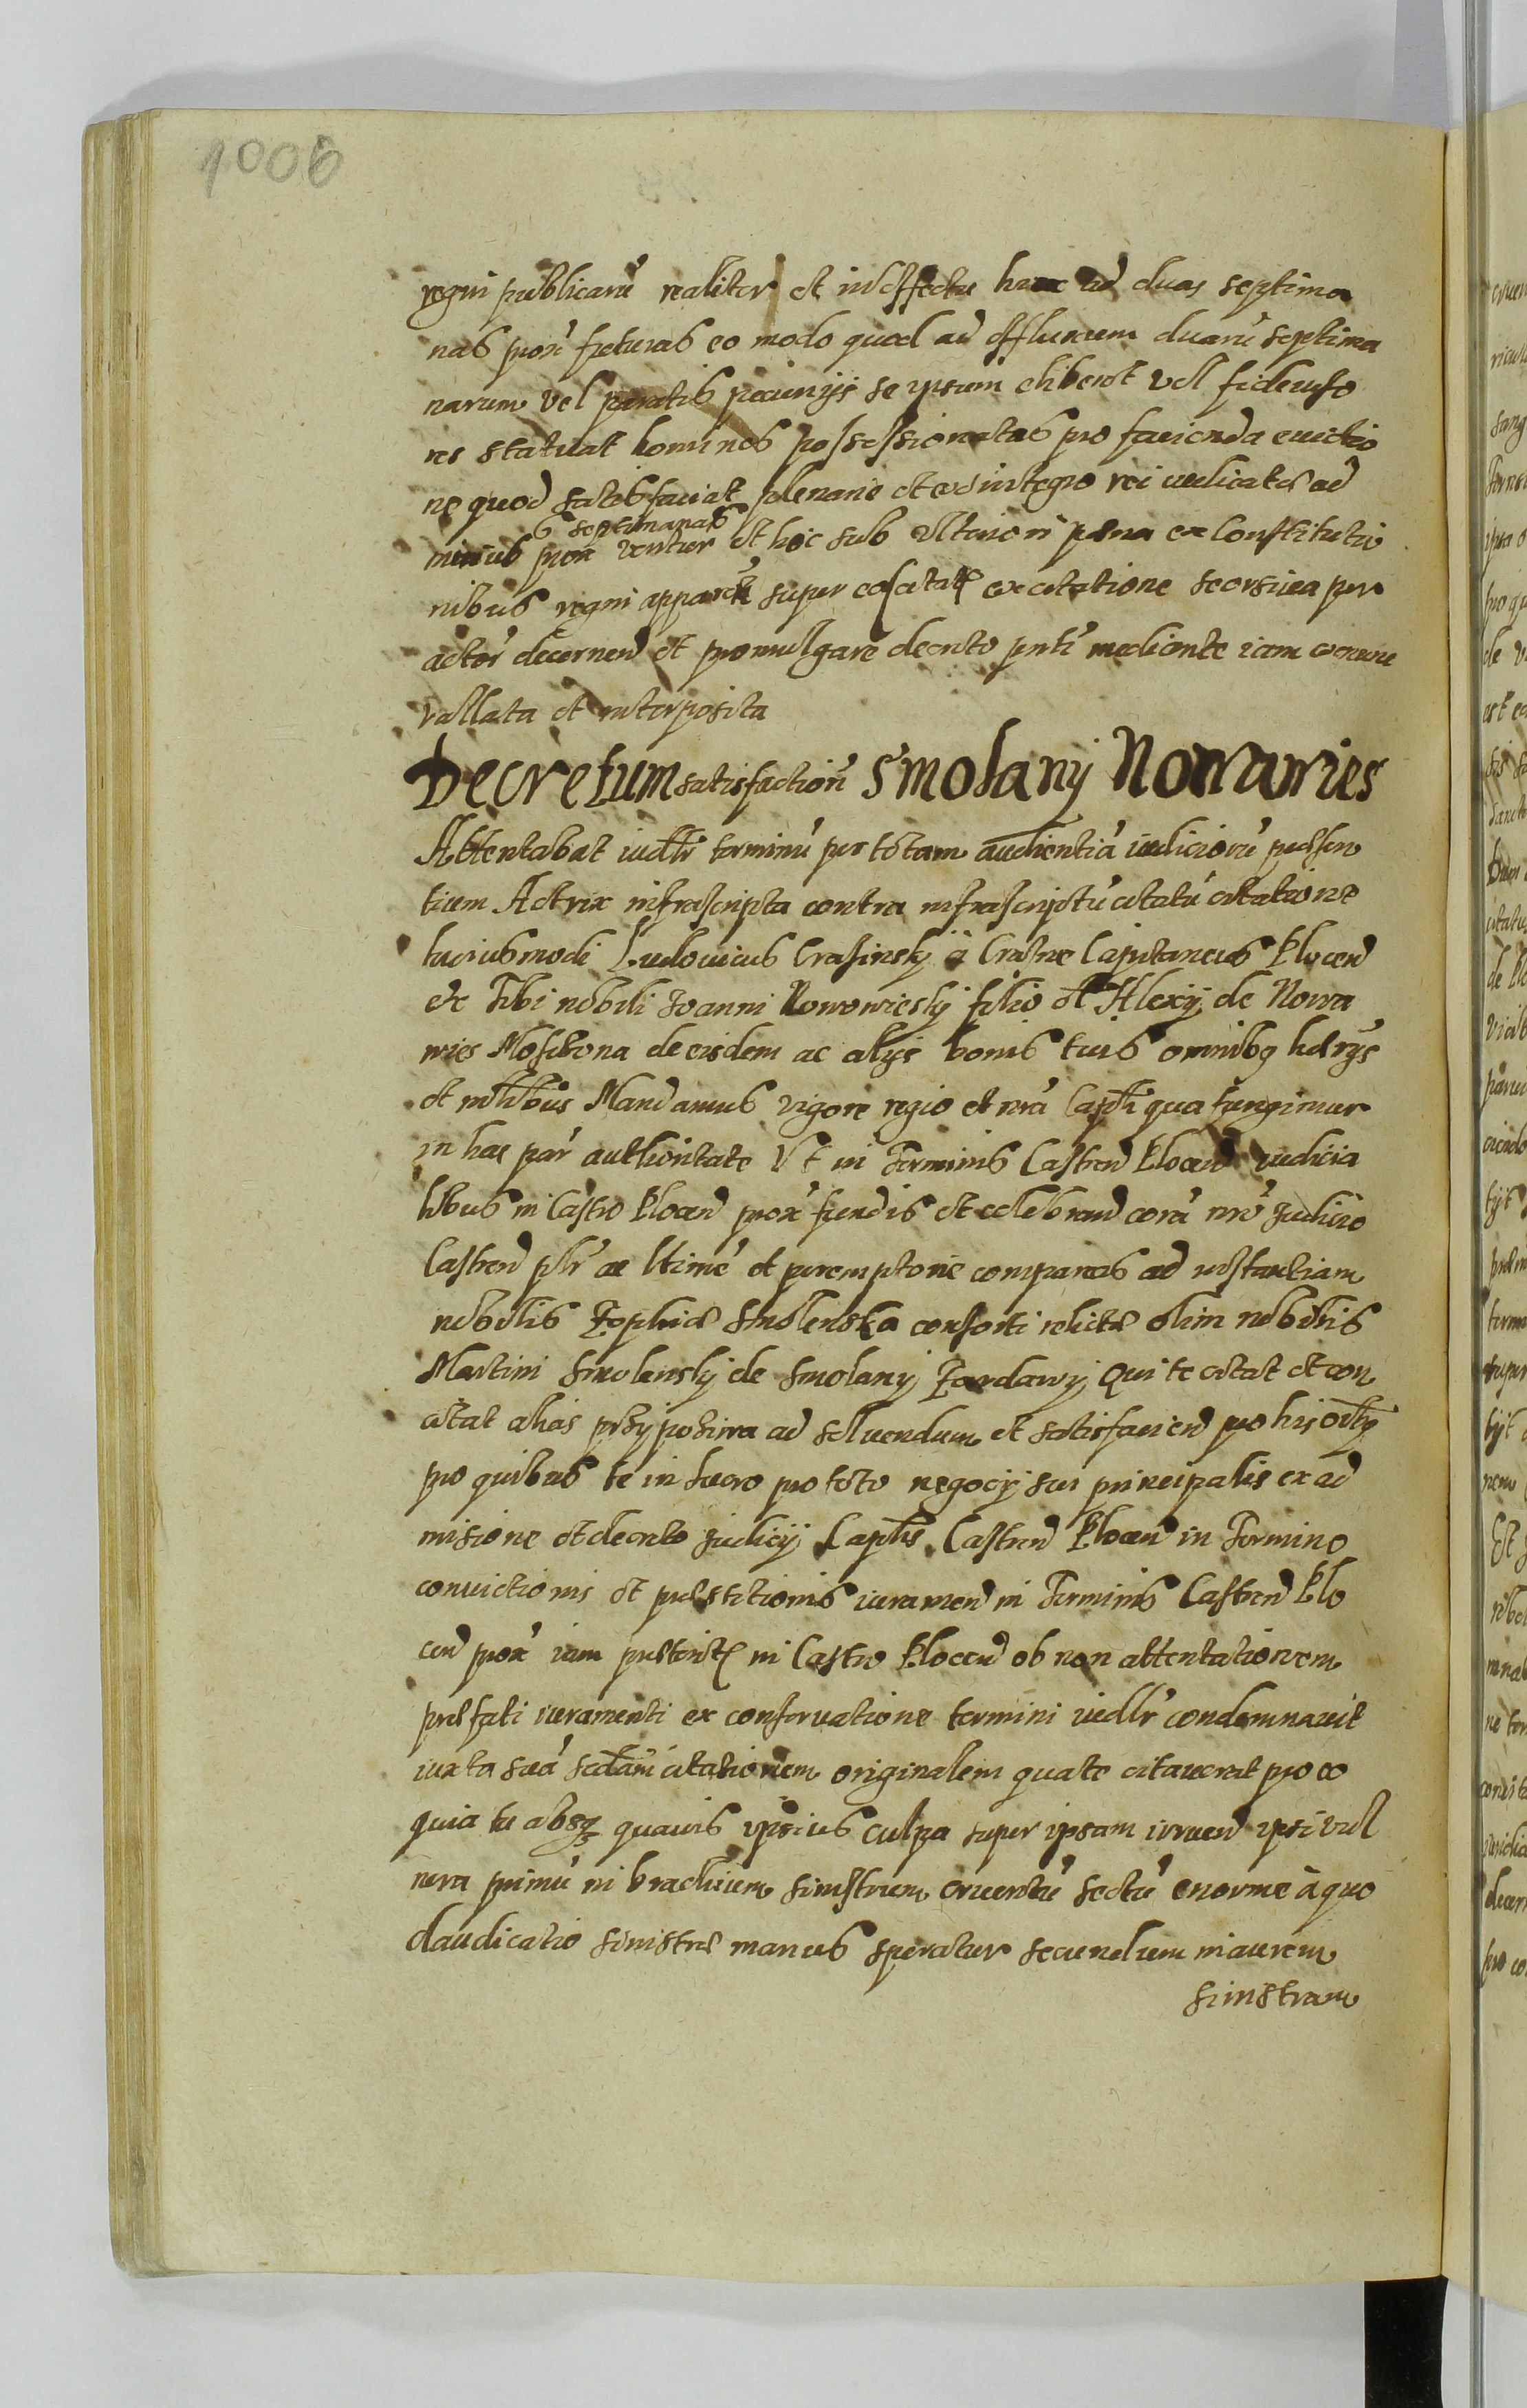 1006
regni publicarũ realiter et in effectu hinc ad duas septima
nas prox futuras eo modo quod ad effluxum duarũ septima
narum vel paratis pecunijs se ipsum eliberet vel fideiusso
res statuat homines possessionatos pro facienda euictio
ne quod satisfaciat plenarie et ex integro rei iudicatæ ad
6 septimanas
minus prox ventur et hoc sub vlteriori pæna ex Constitutio
nibus regni apparen super eo citat ex citatione seorsiua per
actor decernen et promulgare decreto pnti mediante iam
vallata et interposita
Decretum satisfaction Smolany Nowawies
Attentabat iudlr terminũ per totam audientiã iudiciorũ præsen
tium Actrix infrascripta contra infrascriptũ citatũ citatione
huiusmodi Ludouicus Crasinsky à Crasne Capitaneus Plocen
etc Tibi nobili Joanni Nowowiesky filio ol Alexij de Nowa
wies Moschona de eisdem ac alijs bonis tuis omnibq hærijs
et mlibus Mandamus vigore regio et nrã Capli qua fungimur
in hac par authoritate Vt in Terminis Castren Plocen iudicia
libus in Castro Plocen prox fiendis et celebrand corã nrõ Judicio
Castren plr ac ltime et peremptorie compareas ad instantiam
nobilis Zophiæ Smolenska consorti relictæ olim nobilis
Martini Smolensky de Smolany Zardawy Qui te citat et con
citat alias przypoziwa ad soluendum et satisfacien pro his oibq
pro quibus te in lucro pro toto negocij sui principalis ex ad
misione et decreto Judicij Caplis Castren Plocen in Termino
convictionis et præstitionis iuramen in Terminis Castren Plo
cen prox iam præterit in Castro Plocen ob non attentationem
præfati iuramenti ex conseruatione termini iudlr condemnauit
iuxta suã citationem originalem qua te citauerat pro eo
quia tu absq quavis ipsius culpa super ipsam irruen ipsi vul
nera primũ in brachium sinistrum cruentũ sectũ enorme à quo
claudicatio sinistræ manus speratur secundum in aurem
sinistram